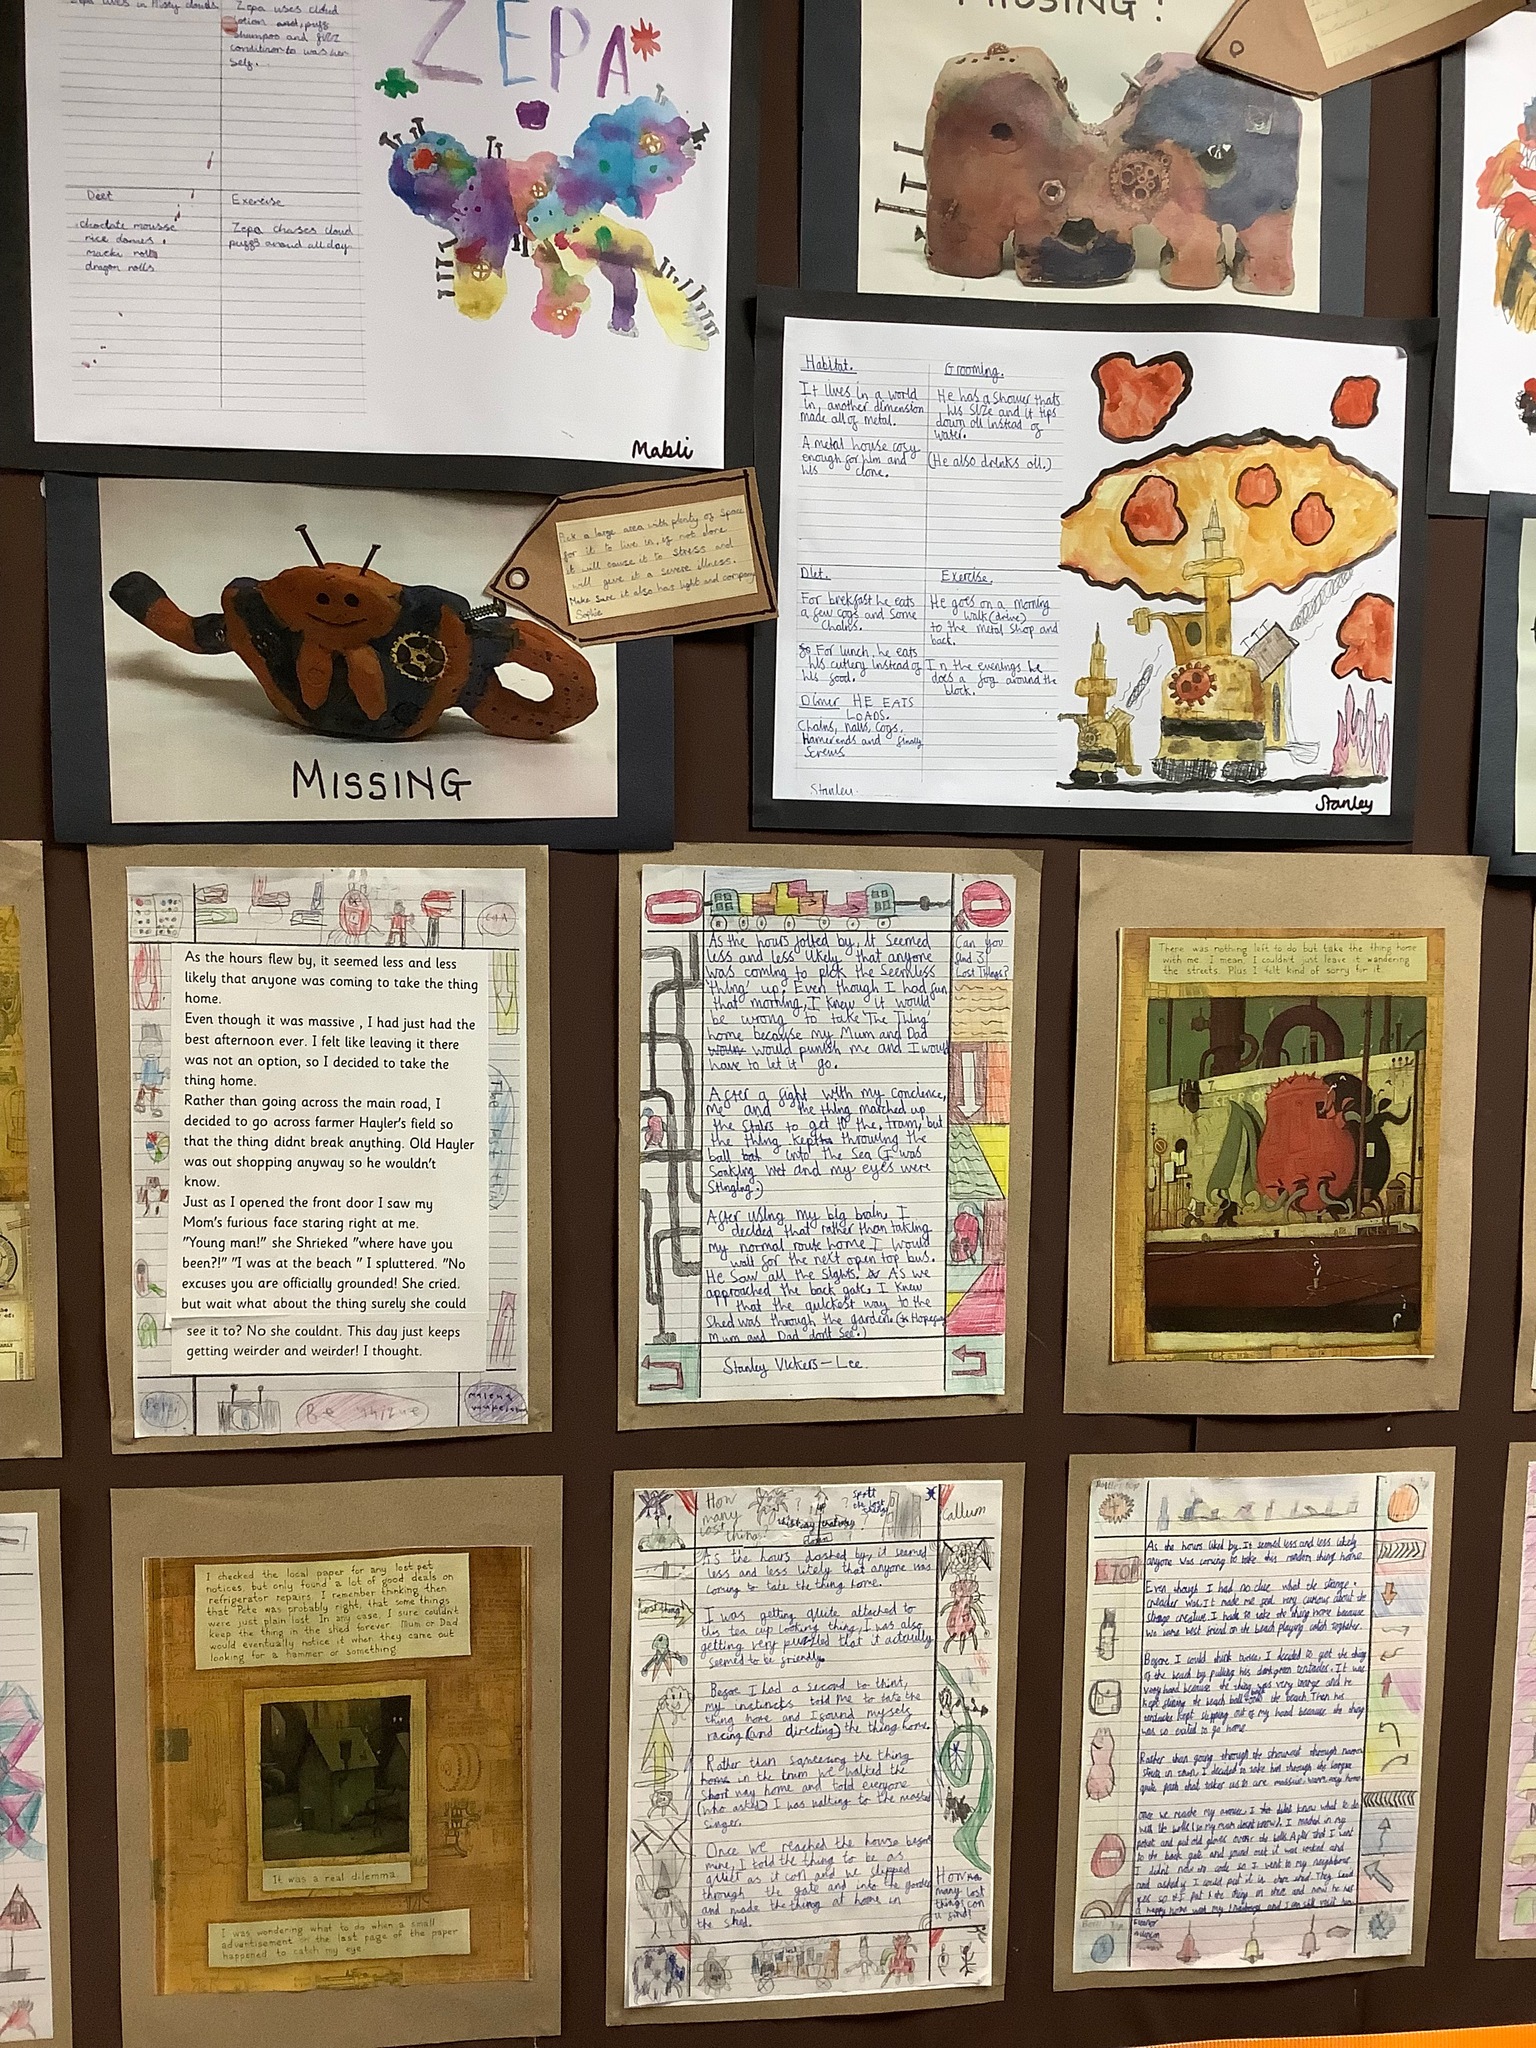 Zepa lives in Missy clouds
Zepa uses cloud
lotion and, puff
shampoo and fizz
conditionor to was her
self.
Deet
Exercise
choclate mousse
rice domes
macki rolls
dragon rolls
Zepa chases cloud
puffs aroud all day
ZEPA
Mabli
MISSING!
Pick a large area with plenty of space
for it to live in, if not done
it will cause it to stress and
will give it a severe illness.
Make sure it also has light and company
Sophie
MISSING
Habitat.
It lives in a world
in, another dimension
made all of metal.
A metal house cosy
enough for him and
his clone.
Grooming.
He has a shower thats
his size and it tips
down oil instead of
water.
(He also drinks oil.)
Diet.
For brekfast he eats
a few cogs and some
chains.
For lunch he eats
his cutlery instead of
his food.
Dinner HE EATS
LOADS.
Chains, nails, cogs,
Hamerends and finally
Screws
Exercise.
He goes on a morning
walk (drive)
to the metal shop and
back.
In the evenings he
does a jog around the
block.
Stanley
Stanley
As the hours flew by, it seemed less and less
likely that anyone was coming to take the thing
home.
Even though it was massive , I had just had the
best afternoon ever. I felt like leaving it there
was not an option, so I decided to take the
thing home.
Rather than going across the main road, I
decided to go across farmer Hayler's field so
that the thing didnt break anything. Old Hayler
was out shopping anyway so he wouldn't
know.
Just as I opened the front door I saw my
Mom's furious face staring right at me.
"Young man!" she Shrieked "where have you
been?!" "I was at the beach " I spluttered. "No
excuses you are officially grounded! She cried.
but wait what about the thing surely she could
see it to? No she couldnt. This day just keeps
getting weirder and weirder! I thought.
Be unique
As the hours jolted by, it seemed
less and less likely that anyone
was coming to pick the Seemless
'thing' up. Even though I had fun
that morning, I knew it would
be wrong to take 'The Thing'
home because my Mum and Dad
would punish me and I would
have to let it go.
After a fight with my concience,
me and the thing marched up
the stairs to get to the tram, but
the thing kept throwing the
ball into the Sea (I was
Soaking wet and my eyes were
Stinging.)
After using my big brain, I
decided that rather than taking
my normal route home I would
wait for the next open top bus.
He saw all the sights. As we
approached the back gate, I knew
that the quickest way to the
Shed was through the garden. (Hopefully
Mum and Dad don't see.)
Stanley Vickers-Lee
Can you
find 3
Lost Things?
There was nothing left to do but take the thing home
with me. I mean, I couldn't just leave it wandering
the streets. Plus I felt kind of sorry for it.
I checked the local paper for any lost pet
notices, but only found a lot of good deals on
refrigerator repairs. I remember thinking then
that Pete was probably right, that some things
were just plain lost. In any case, I sure couldn't
keep the thing in the shed forever. Mum or Dad
would eventually notice it when they came out
looking for a hammer or something.
It was a real dilemma.
I was wondering what to do when a small
advertisement on the last page of the paper
happened to catch my eye.
How
many
lost things?
spott
the lost
things
Callum
As the hours dashed by, it seemed
less and less likely that anyone was
coming to take the thing home.
I was getting quite attached to
this tea cup looking thing, I was also
getting very puzzled that it actually
seemed to be friendly.
Before I had a second to think,
my instincts told me to take the
thing home and I found my self
racing (and directing) the thing home.
Rather than squeezing the thing
home in the tram we walked the
short way home and told everyone
(who asked) I was walking to the nearest
singer.
Once we reached the house before
mine, I told the thing to be as
quiet as it can and we slipped
through the gate and into the garden
and made the thing at home in
the shed.
Lost thing
How
many lost
things can
u find!
STOP
As the hours by. It seemed less and less likely
anyone was coming to take this random thing home.
Even though I had no clue what the strange
creader was. It made me feel very curious about the
strange creature. I had to take the thing home because
we were best friend on the beach playing catch together.
Before I could think twice, I decided to get the thing
of the beach by pulling his dark green tentacles. It was
very hard because the thing was very large and he
kept the beach ball the beach. Then his
tentacles kept slipping out of my hand because the thing
was so exited to go home.
Rather than going through the through narrow
in town, I decided to take him through the
path that takes us to